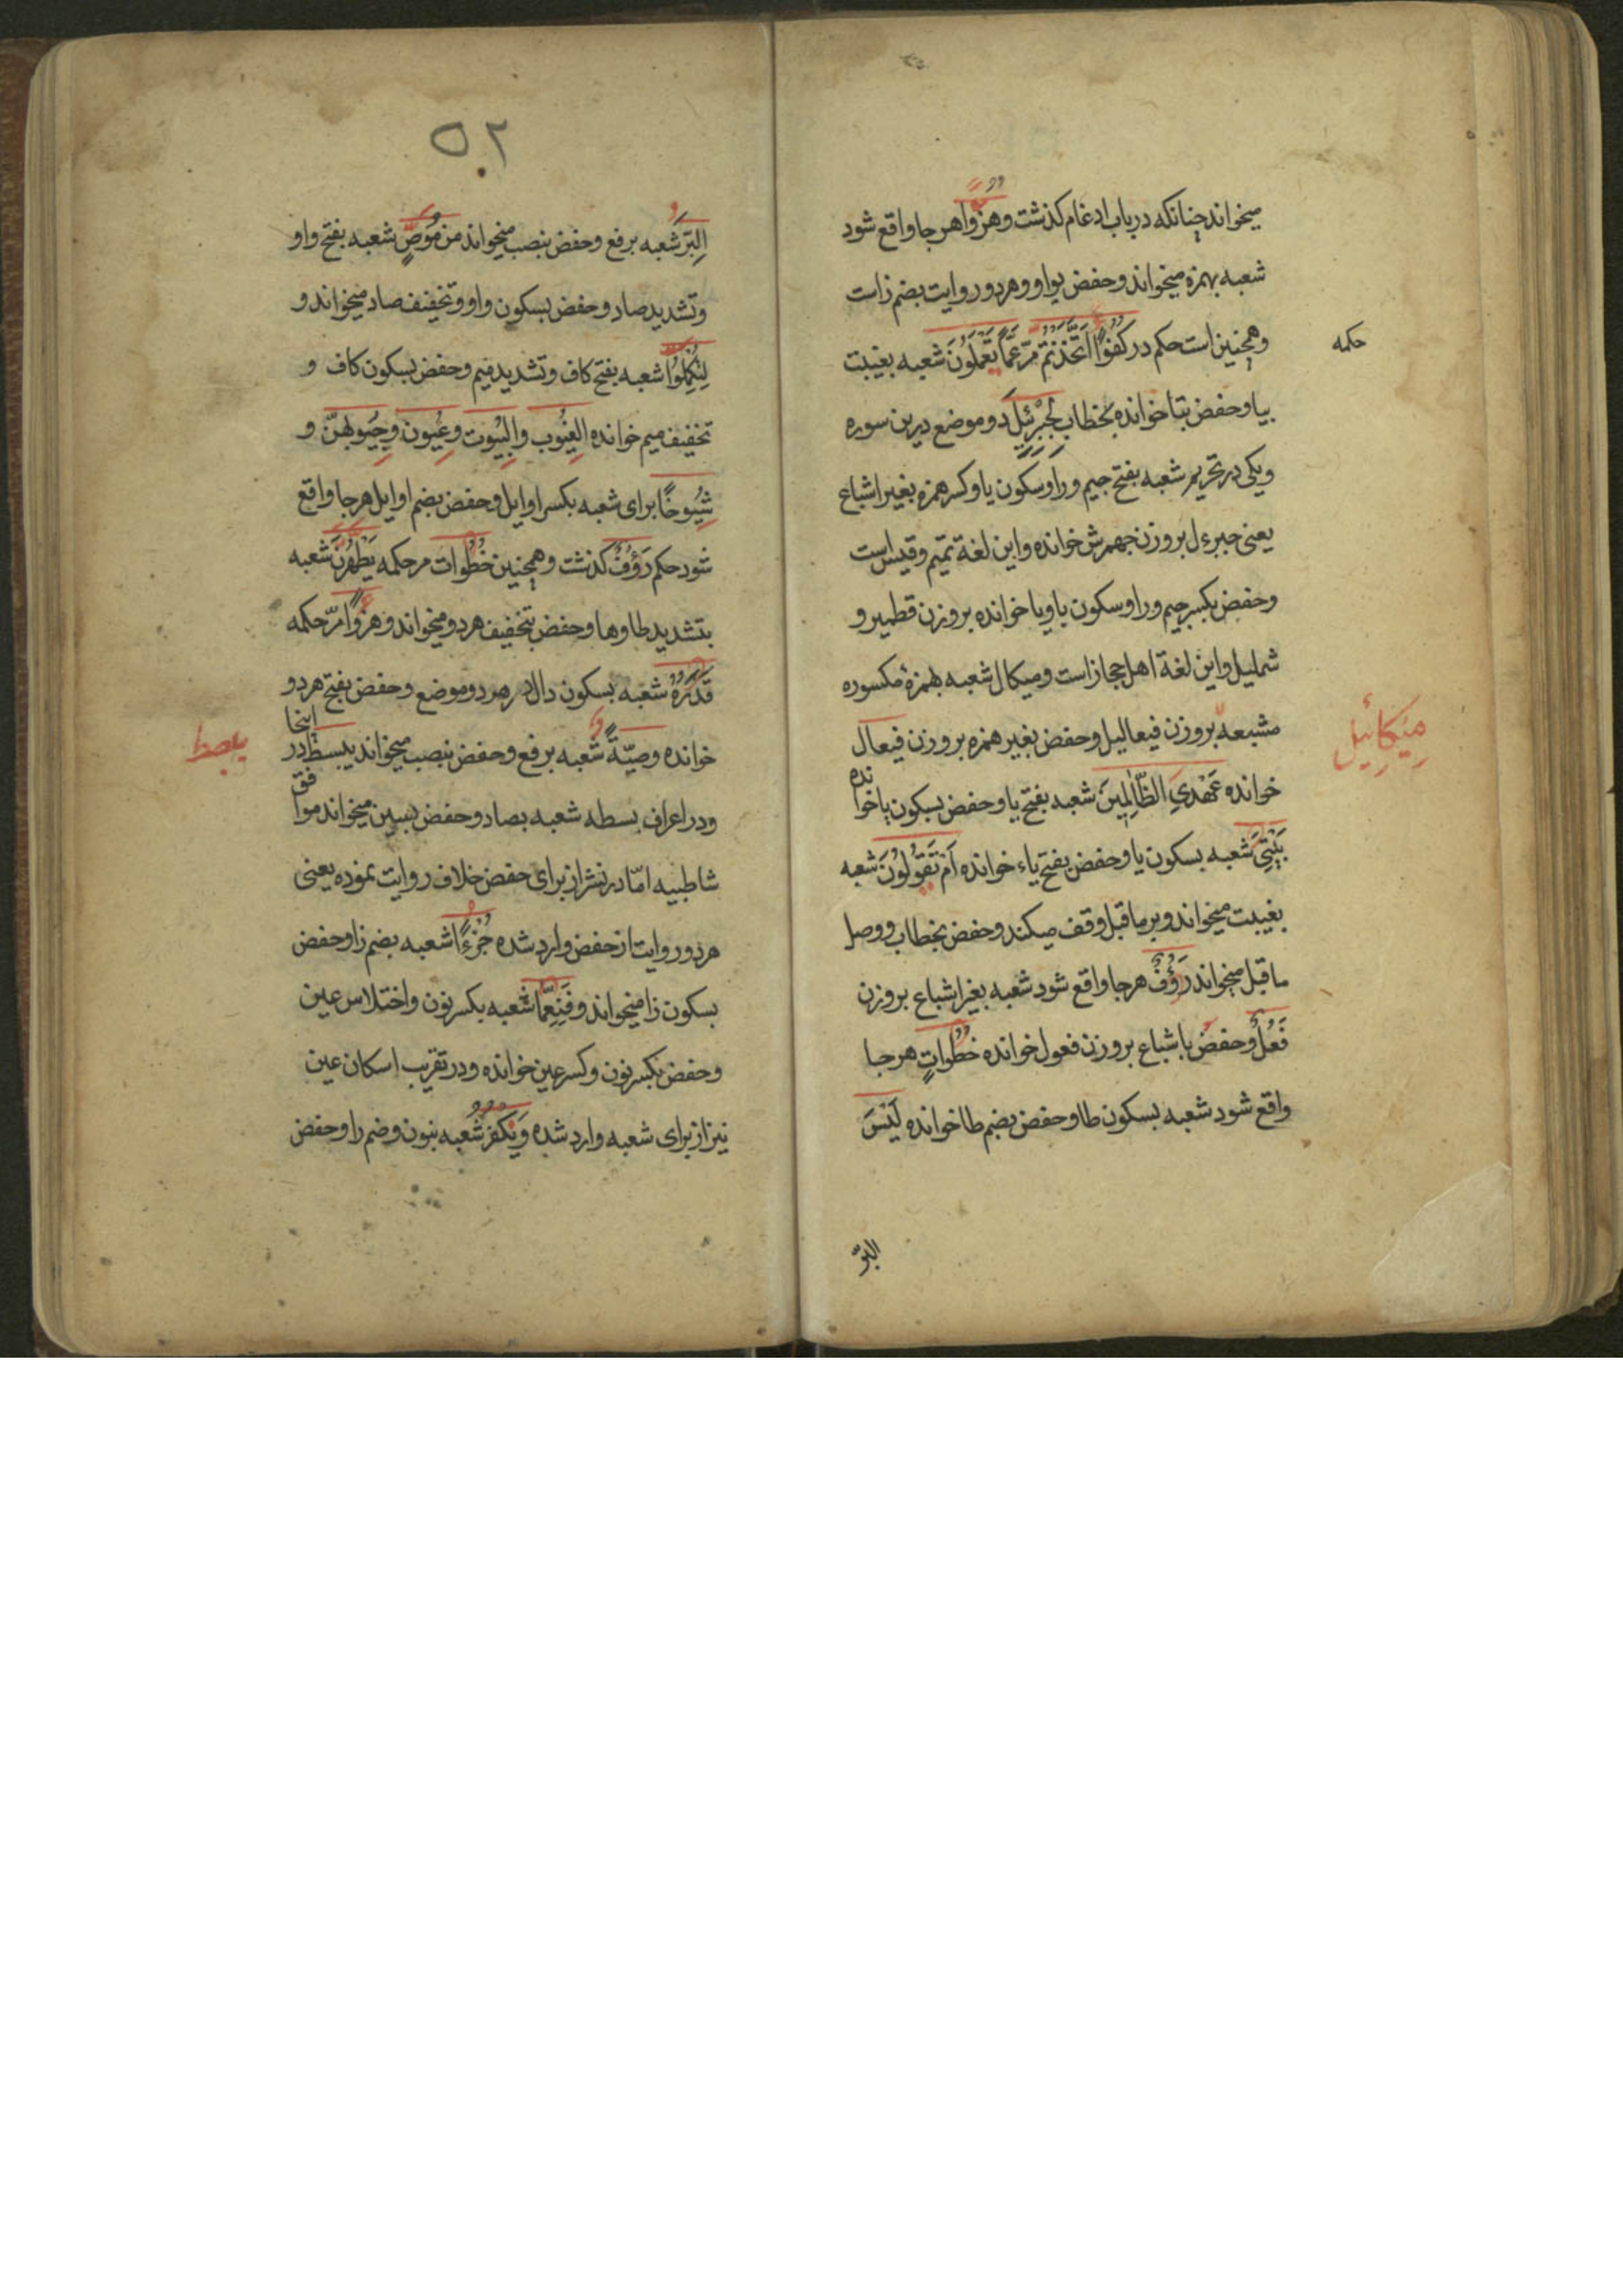 میخواند چنانکه در باب ادغام کذشت وهزوا هر جا واقع شود
شعبه بهمزه میخواند وحفص بواو وهر دو روایت بضم زاست
وهمچنین است حکم در کفوا اتخذتم مر عما تعملون شعبه بغیبت
حکمه
بیا وحفص بتا خوانده بخطاب لجبرئیل دو موضع درین سوره
ویکی در تحریم شعبه بفتح جیم ورا وسکون یا وکسر همزه بغیر اشباع
یعنی جبرءل بروزن جهمرش خوانده واین لغة تمیم وقیس است
وحفص بکسر جیم ورا وسکون یا ویا خوانده بروزن قطمیر و
شملیل واین لغة اهل حجاز است ومیکال شعبه بهمزهٔ مکسوره
مشبعه بروزن فیعالیل وحفص بغیر همزه بروزن فیعال
میکائیل
خوانده عَهْدِيَ الظَّالِمِينَ شعبه بفتح یا وحفص بسکون یا خوانده
بَيْتِيَ شعبه بسکون یا وحفص بفتح یاء خوانده اَمْ تَقُولُونَ شعبه
بغیبت میخواند وبر ماقبل وقف میکند وحفص بخطاب ووصل
ماقبل میخواند رَؤُفٌ هر جا واقع شود شعبه بغیر اشباع بروزن
فَعُلٌ وحفص باشباع بروزن فعول خوانده خُطُواتٍ هر جا
واقع شود شعبه بسکون طا وحفص بضم طا خوانده لَيْسَ
البرّ
٥٠٢
البرَّ شعبه برفع وحفص بنصب میخواند من مُوَصٍّ شعبه بفتح واو
وتشدید صاد وحفص بسکون واو وتخفیف صاد میخواند و
لِتُكَمِّلُوا شعبه بفتح کاف وتشدید میم وحفص بسکون کاف و
تخفیف میم خوانده الغیوب والبیوت وعیون وجیوبهنّ و
شیوخًا برای شعبه بکسر اوایل وحفص بضم اوایل هر جا واقع
شود حکم رَؤُفٌ کذشت وهمچنین خُطُوات مر حکمه يَطَّهَّرْنَ شعبه
بتشدید طا وها وحفص بتخفیف هر دو میخواند وهزوا مرّ حکمه
قَدْرُهُ شعبه بسکون دال در هر دو موضع وحفص بفتح هر دو
خوانده وصيّةٌ شعبه برفع وحفص بنصب میخواند یبسط در اینجا
یبصط
ودر اعراف بسطه شعبه بصاد وحفص بسین میخواند موافق
شاطبیه امّا در نشر از برای حفص خلاف روایت نموده یعنی
هر دو روایت از حفص وارد شده جُزُءًا شعبه بضم زا وحفص
بسکون زا میخواند وفَنِعِمَّا شعبه بکسر نون واختلاس عین
وحفص بکسر نون وکسر عین خوانده ودر تقریب اسکان عین
نیز از برای شعبه وارد شده ونُكَفِّرُ شعبه بنون وضم را وحفص